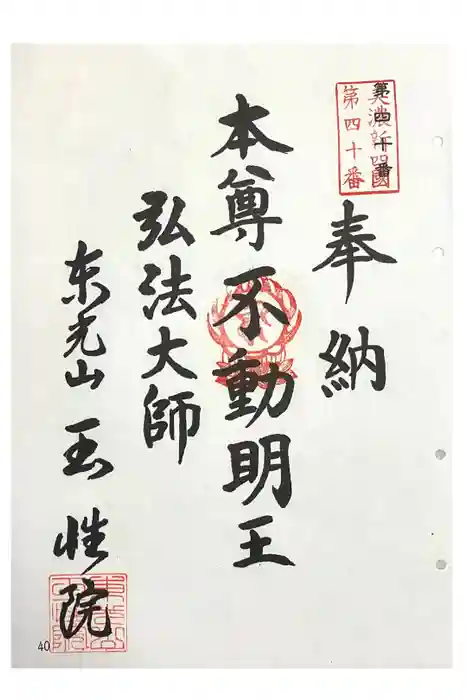 美濃新四國
第四十番
第四十番
奉納
本尊不動明王
弘法大師
东光山玉性院
40